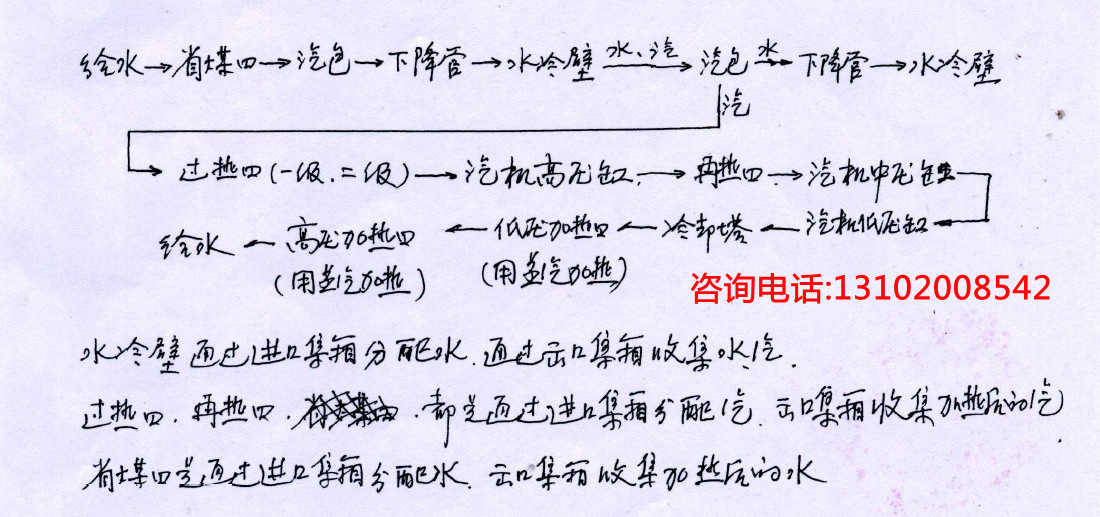 给水→省煤器→汽包→下降管→水冷壁 水、汽→ 汽包 水→ 下降管→水冷壁
汽
→过热器(一级.二级)→汽机高压缸→再热器→汽机中压缸
给水←高压加热器←低压加热器←冷却塔←汽机低压缸←
(用蒸汽加热) (用蒸汽加热)
咨询电话:13102008542
水冷壁通过进口集箱分配水.通过出口集箱收集水汽.
过热器.再热器.都是通过进口集箱分配汽.出口集箱收集加热后的汽
省煤器是通过进口集箱分配水.出口集箱收集加热后的水